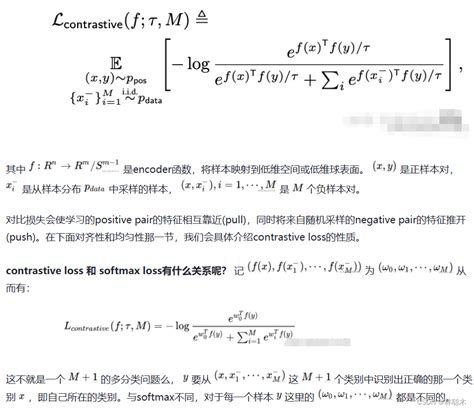 L_contrastive(f; τ, M) ≜
𝔼 (x,y)∼p_pos {x_i^-}_{i=1}^M i.i.d.∼ p_data [ −log e^{f(x)^T f(y)/τ} / ( e^{f(x)^T f(y)/τ} + ∑_i e^{f(x_i^-)^T f(y)/τ} ) ],
其中 f : R^n → R^m/S^{m−1} 是encoder函数，将样本映射到低维空间或低维球表面。 (x, y) 是正样本对，
x_i^- 是从样本分布 p_data 中采样的样本， (x, x_i^-), i = 1, ⋯, M 是 M 个负样本对。
对比损失会使学习的positive pair的特征相互靠近(pull)，同时将来自随机采样的negative pair的特征推开
(push)。在下面对齐性和均匀性那一节，我们会具体介绍contrastive loss的性质。
contrastive loss 和 softmax loss有什么关系呢？ 记 (f(x), f(x_1^-), ⋯, f(x_M^-)) 为 (ω_0, ω_1, ⋯, ω_M) 从
而有：
L_contrastive(f; τ, M) = −log e^{w_0^T f(y)} / ( e^{w_0^T f(y)} + ∑_{i=1}^M e^{w_i^T f(y)} )
这不就是一个 M + 1 的多分类问题么， y 要从 (x, x_1^-, ⋯, x_M^-) 这 M + 1 个类别中识别出正确的那一个类
别 x ，即自己所在的类别。与softmax不同，对于每一个样本 y 这里的 (ω_0, ω_1, ⋯, ω_M) 都是不同的。